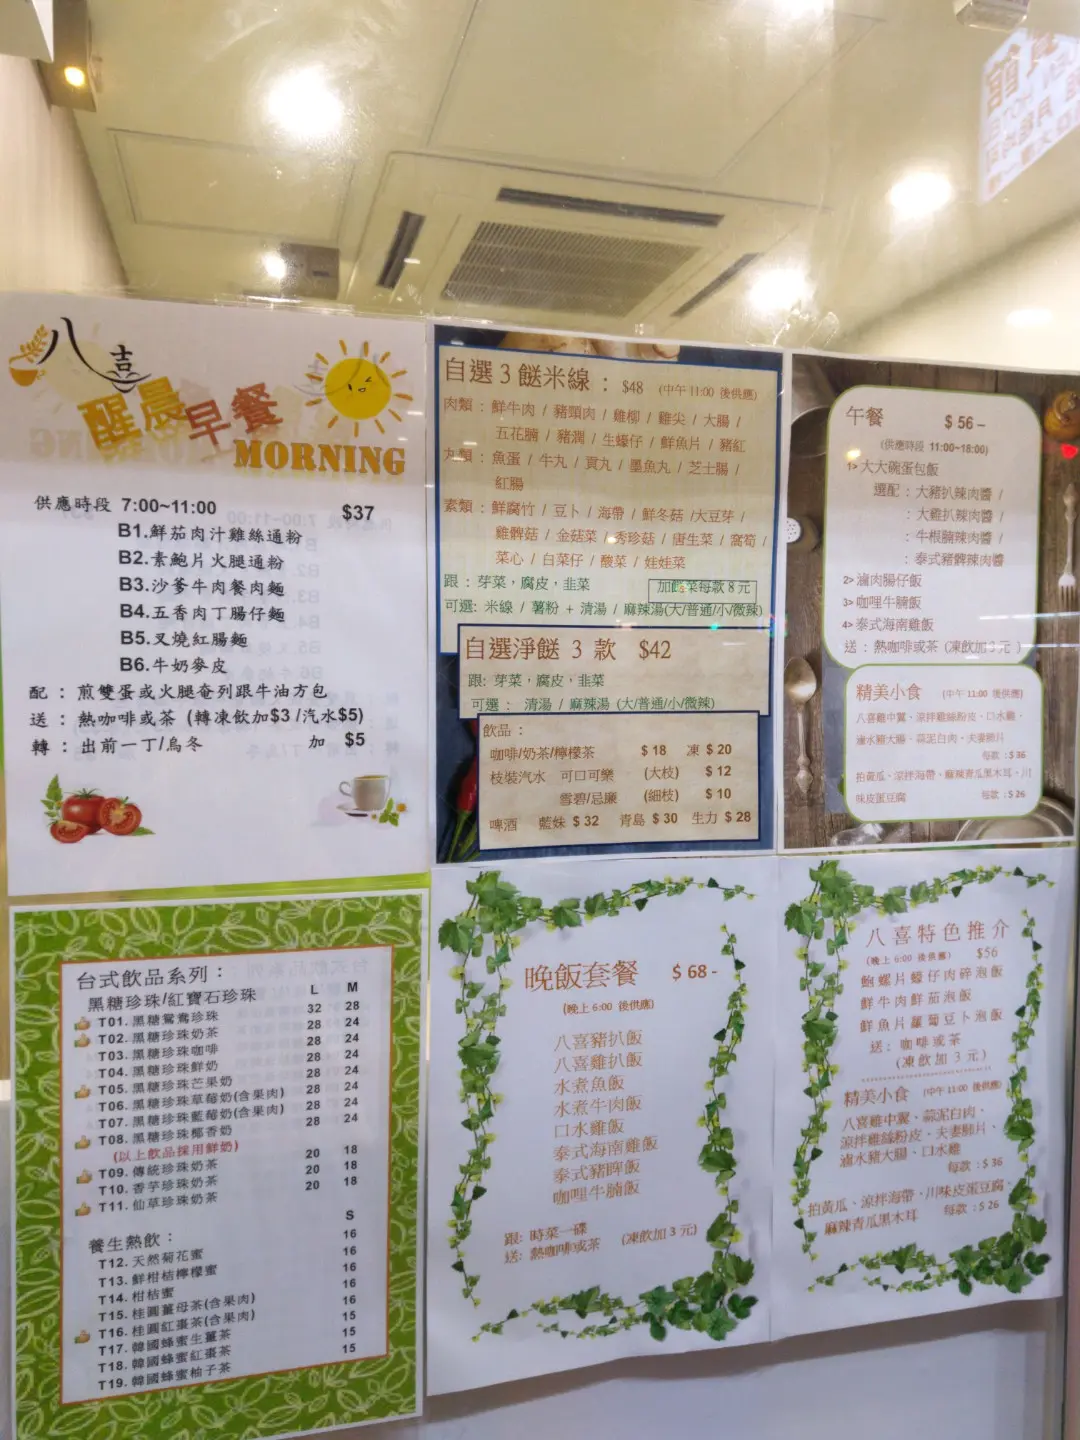 八喜
醒晨早餐
MORNING
供應時段 7:00~11:00 $37
B1.鮮茄肉汁雞絲通粉
B2.素鮑片火腿通粉
B3.沙爹牛肉餐肉麵
B4.五香肉丁腸仔麵
B5.叉燒紅腸麵
B6.牛奶麥皮
配：煎雙蛋或火腿奄列跟牛油方包
送：熱咖啡或茶 (轉凍飲加$3 /汽水$5)
轉：出前一丁/烏冬 加 $5
自選 3 餸米線： $48 (中午 11:00 後供應)
肉類：鮮牛肉 / 豬頸肉 / 雞柳 / 雞尖 / 大腸 /
五花腩 / 豬潤 / 生蠔仔 / 鮮魚片 / 豬紅
丸類：魚蛋 / 牛丸 / 貢丸 / 墨魚丸 / 芝士腸 /
紅腸
素類：鮮腐竹 / 豆卜 / 海帶 / 鮮冬菇 /大豆芽 /
雞髀菇 / 金菇菜 / 秀珍菇 / 唐生菜 / 窩筍 /
菜心 / 白菜仔 / 酸菜 / 娃娃菜
跟：芽菜，腐皮，韭菜 加餸菜每款 8 元
可選: 米線 / 薯粉 + 清湯 / 麻辣湯(大/普通/小/微辣)
自選淨餸 3 款 $42
跟: 芽菜，腐皮，韭菜
可選： 清湯 / 麻辣湯 (大/普通/小/微辣)
飲品：
咖啡/奶茶/檸檬茶 $ 18 凍 $ 20
枝裝汽水 可口可樂 (大枝) $ 12
雪碧/忌廉 (細枝) $ 10
啤酒 藍妹 $ 32 青島 $ 30 生力 $ 28
午餐 $ 56 –
(供應時段 11:00~18:00)
1> 大大碗蛋包飯
選配：大豬扒辣肉醬 /
：大雞扒辣肉醬 /
：牛根腩辣肉醬 /
：泰式豬髀辣肉醬
2> 滷肉腸仔飯
3> 咖哩牛腩飯
4> 泰式海南雞飯
送：熱咖啡或茶 (凍飲加 3 元 )
精美小食 (中午 11:00 後供應)
八喜雞中翼、涼拌雞絲粉皮、口水雞、
滷水豬大腸、蒜泥白肉、夫妻肺片
每款：$ 36
拍黃瓜、涼拌海帶、麻辣青瓜黑木耳、川
味皮蛋豆腐 每款：$ 26
台式飲品系列：
黑糖珍珠/紅寶石珍珠 L M
T01.黑糖鴛鴦珍珠 32 28
T02.黑糖珍珠奶茶 28 24
T03.黑糖珍珠咖啡 28 24
T04.黑糖珍珠鮮奶 28 24
T05.黑糖珍珠芒果奶 28 24
T06.黑糖珍珠草莓奶(含果肉) 28 24
T07.黑糖珍珠藍莓奶(含果肉) 28 24
T08.黑糖珍珠椰香奶 28 24
(以上飲品採用鮮奶)
T09.傳統珍珠奶茶 20 18
T10.香芋珍珠奶茶 20 18
T11.仙草珍珠奶茶 20 18
養生熱飲： S
T12.天然菊花蜜 16
T13.鮮柑桔檸檬蜜 16
T14.柑桔蜜 16
T15.桂圓薑母茶(含果肉) 16
T16.桂圓紅棗茶(含果肉) 16
T17.韓國蜂蜜生薑茶 15
T18.韓國蜂蜜紅棗茶 15
T19.韓國蜂蜜柚子茶 15
晚飯套餐 $ 68 -
(晚上 6:00 後供應)
八喜豬扒飯
八喜雞扒飯
水煮魚飯
水煮牛肉飯
口水雞飯
泰式海南雞飯
泰式豬脾飯
咖哩牛腩飯
跟: 時菜一碟
送: 熱咖啡或茶 (凍飲加 3 元)
八喜特色推介
(晚上 6:00 後供應) $56
鮑螺片蠔仔肉碎泡飯
鮮牛肉鮮茄泡飯
鮮魚片蘿蔔豆卜泡飯
送：咖啡或茶
(凍飲加 3 元)
精美小食 (中午 11:00 後供應)
八喜雞中翼、蒜泥白肉、
涼拌雞絲粉皮、夫妻肺片、
滷水豬大腸、口水雞
每款：$ 36
拍黃瓜、涼拌海帶、川味皮蛋豆腐、
麻辣青瓜黑木耳 每款：$ 26